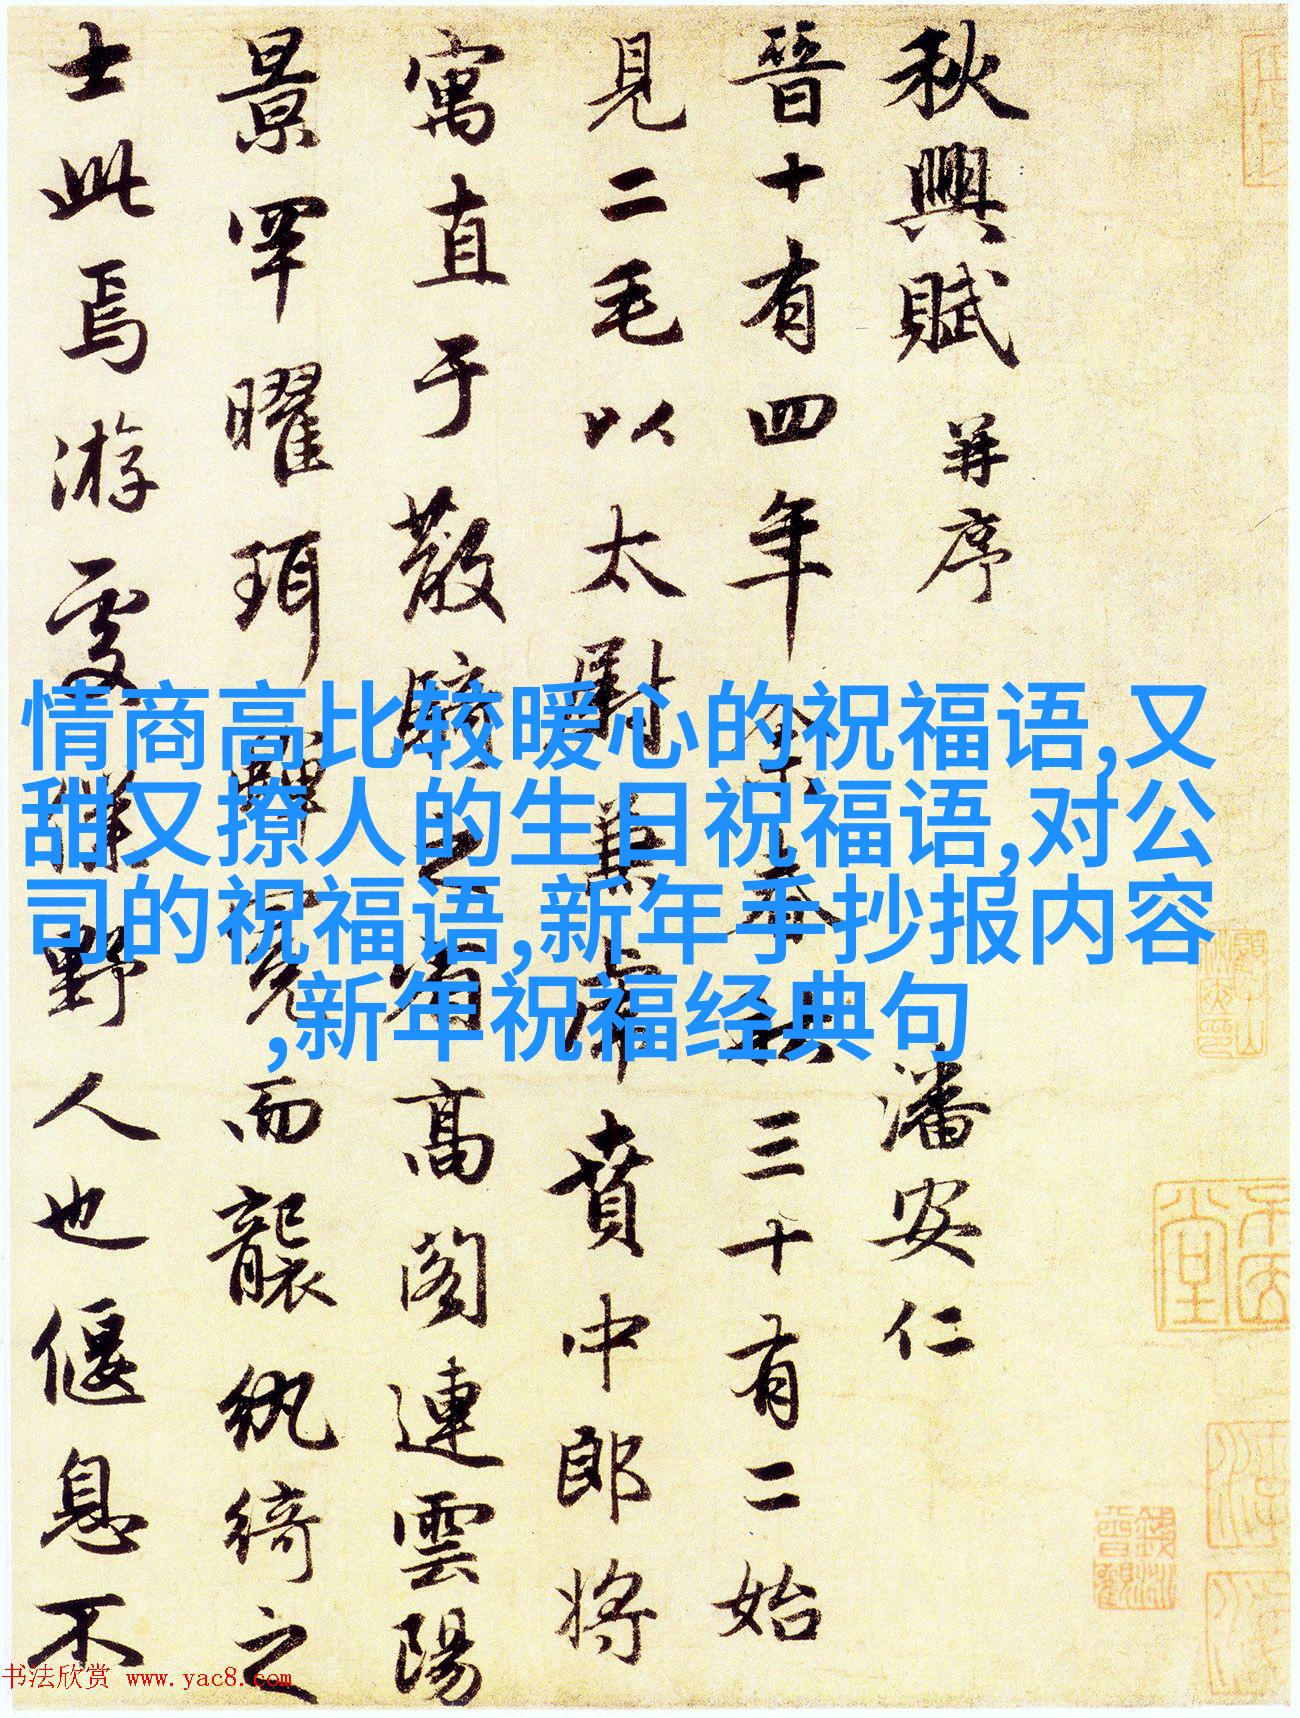 秋興賦 并序 潘安仁
晉十有四年余春秋三十有二始
見二毛以太尉兼虎賁中郎将
寓直于散騎之省高閣連雲陽
景罕曜珥蟬冕而襲紈綺之
士此焉游處僕野人也偃息不
情商高比较暖心的祝福语,又
甜又撩人的生日祝福语,对公
司的祝福语,新年手抄报内容
,新年祝福经典句
书法欣赏 www.yac8.com